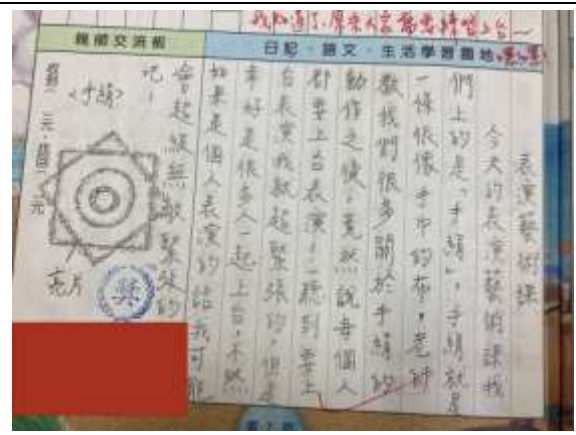 我知道了,原來人家
親師交流板
日記‧語文‧生活學習園地
表演藝術課
今天的表演藝術課我
們上的是「手絹」,手絹就是
一條很像手巾的布,老師
教我們很多關於手絹的
動作之後,竟然說每個人
都要上台表演,一聽到要上
台表演我就超緊張的,但是
幸好是很多人一起上台,不然
如果是個人表演的話我可能
會超級無敵緊張的
吧!
<手絹>
亮片
獎